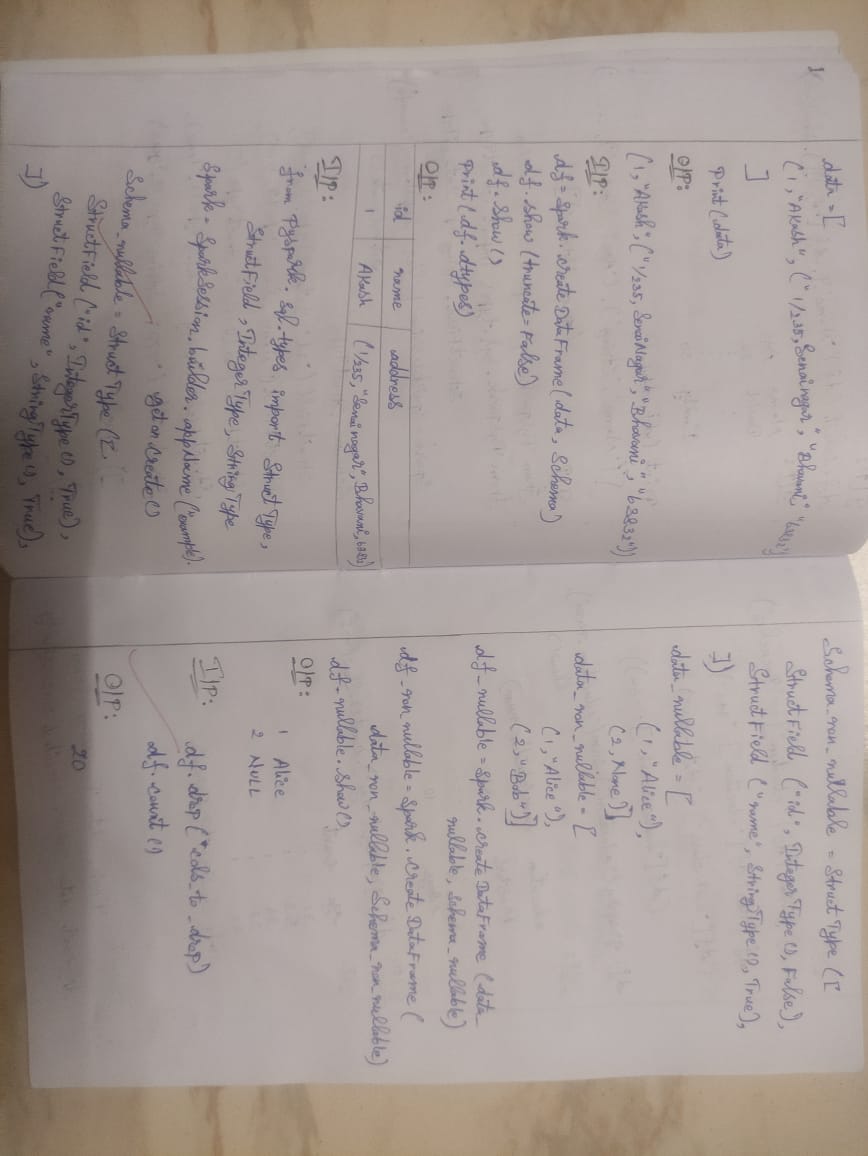 1
data = [
(1, "Akash", ("1/235, Senai nagar", "Bhavani", "63832"))
]
Print (data)
O/P:
(1, "Akash", ("1/235, Senai Nagar", "Bhavani", "63832"))
I/P:
df = Spark. create DataFrame (data, Schema)
df. show (truncate = False)
df. show ()
Print (df. dtypes)
O/P:
id name address
1 Akash (1/235, "Senai nagar", Bhavani,
I/P:
from Pyspark. sql. types import Struct Type,
StructField, Integer Type, String Type
Spark = SparkSession. builder. appName ("example).
get on Create ()
Schema_nullable = Struct Type ([
StructField ("id", Integer Type (), True),
StructField ("name", String Type (), True),
])
Schema_non_nullable = Struct Type ([
StructField ("id", Integer Type (), False),
StructField ("name", String Type (), True),
])
data_nullable = [
(1, "Alice"),
(2, None)]
data_non_nullable = [
(1, "Alice"),
(2, "Bob")]
df_nullable = Spark. create DataFrame (data_
nullable, schema_nullable)
df_non_nullable = Spark. Create DataFrame (
data_non_nullable, Schema_non_nullable)
df_nullable. show ()
O/P:
1 Alice
2 NULL
I/P:
df. drop (*cols_to_drop)
df. count ()
O/P:
20